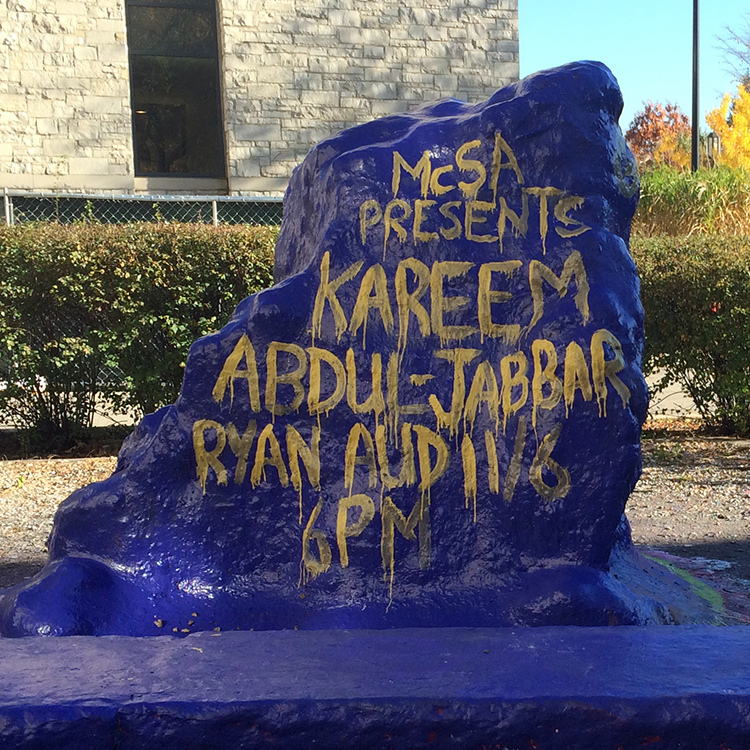 McSA
PRESENTS
KAREEM
ABDUL-JABBAR
RYAN AUD 11/6
6PM